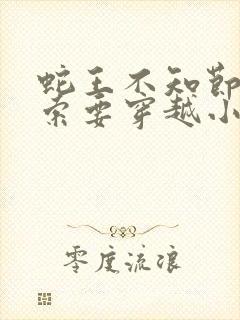 蛇王不知节
索要穿越小
零度流浪